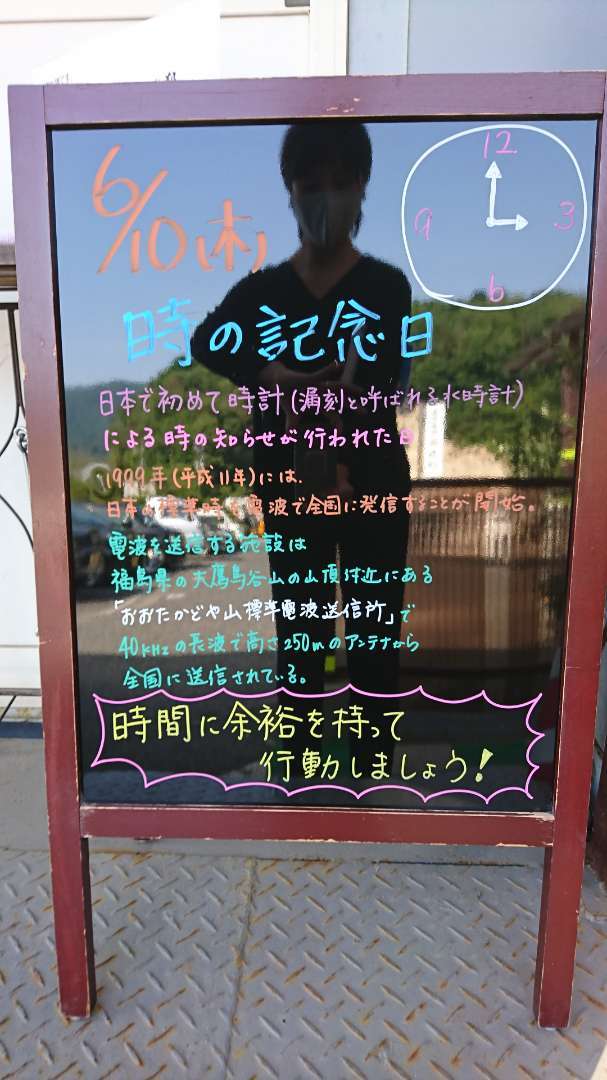 6/10(木)
12
9 3
6
時の記念日
日本で初めて時計(漏刻と呼ばれる水時計)
による時の知らせが行われた日
1999年(平成11年)には、
日本の標準時を電波で全国に発信することが開始。
電波を送信する施設は
福島県の大鷹鳥谷山の山頂付近にある
「おおたかどや山標準電波送信所」で
40KHzの長波で高さ250mのアンテナから
全国に送信されている。
時間に余裕を持って
行動しましょう!